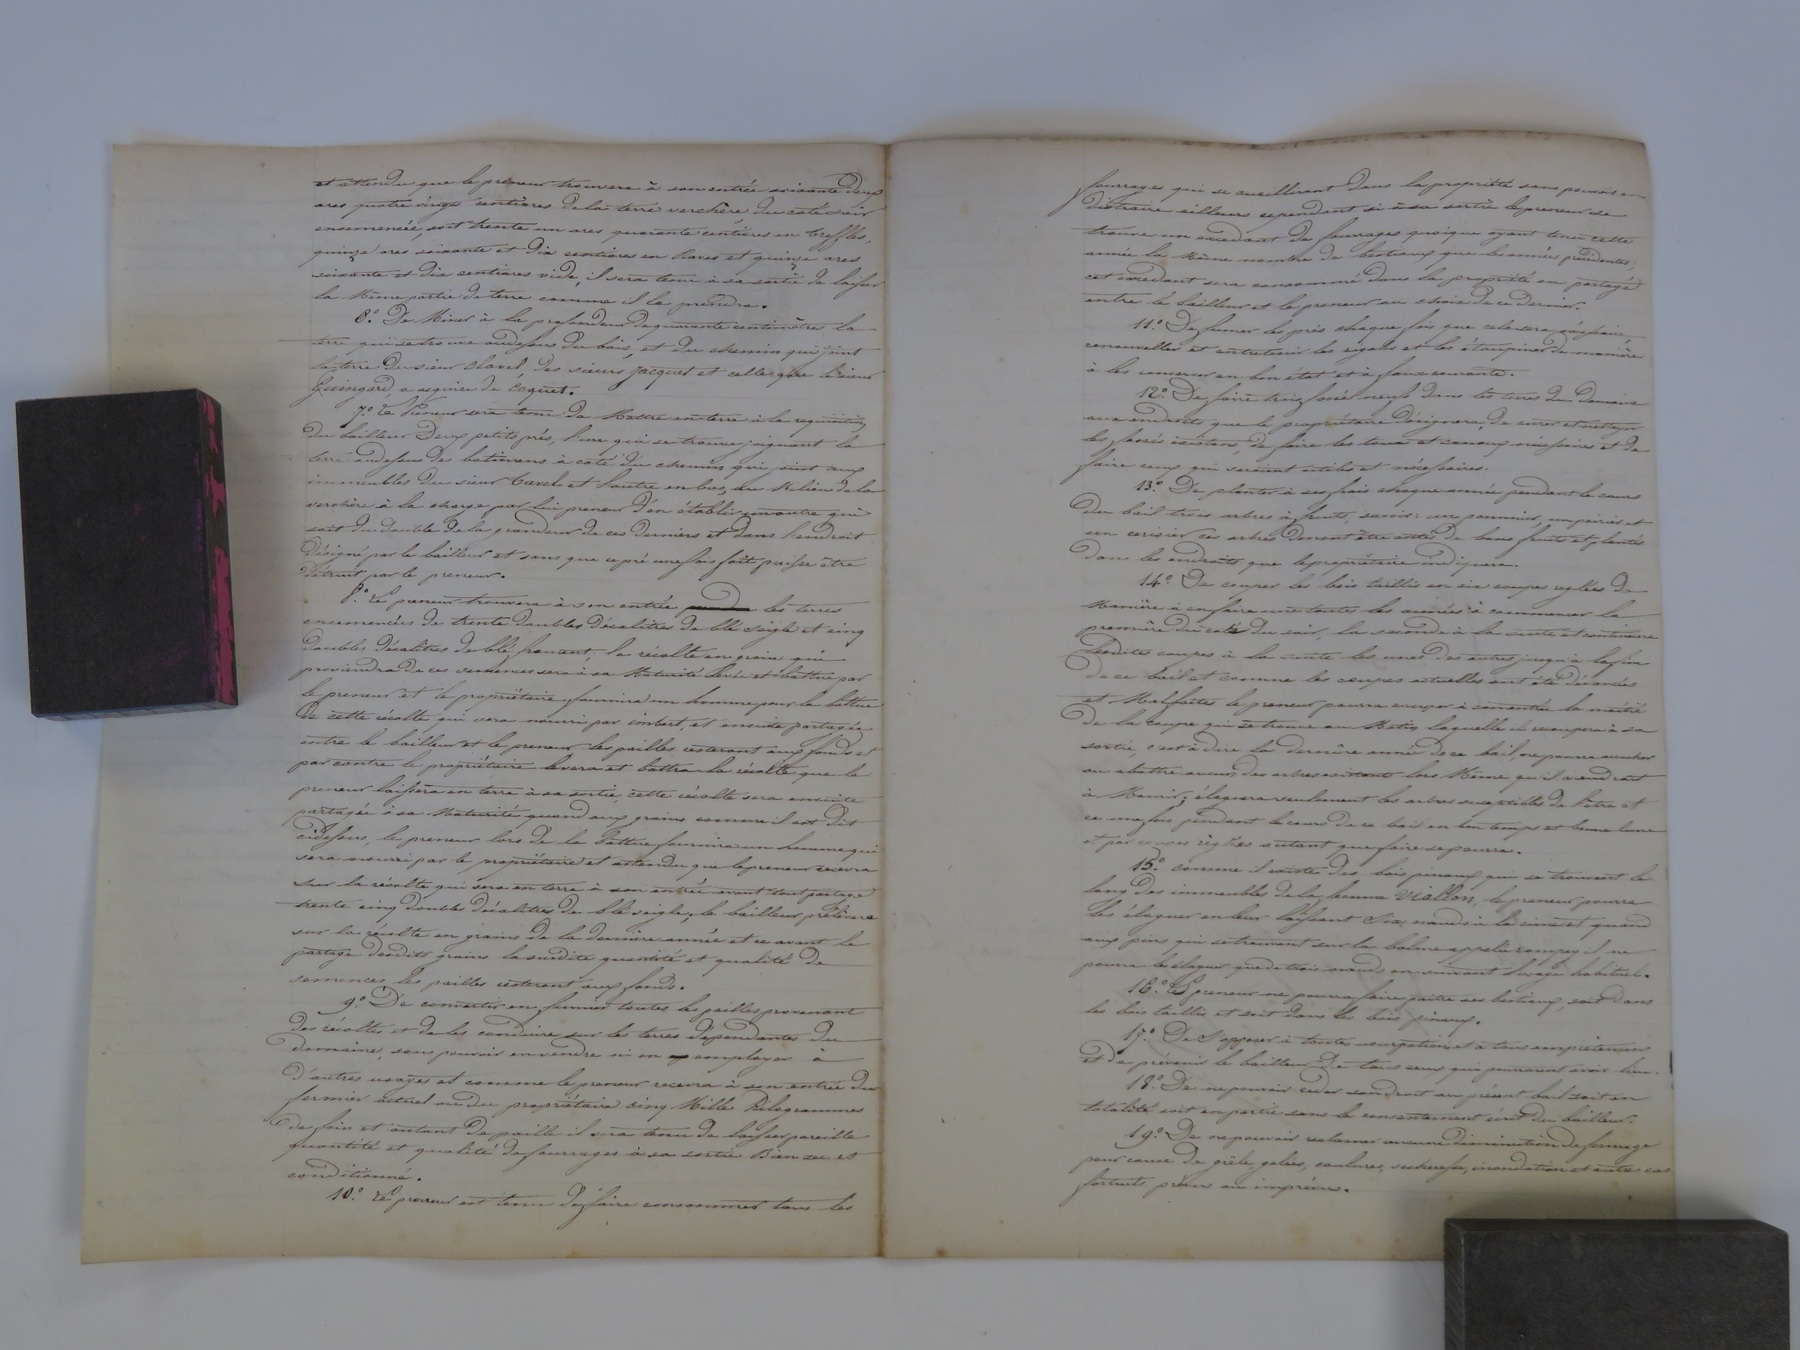 et attendu que le preneur trouvera à son entrée soixante deux
ares quatre vingt centiares de la terre verchère, du coté soir
ensemencée, soit trente un ares quarante centiares en treffles,
quinze ares soixante et dix centiares en Raves et quinze ares
soixante et dix centiares vide, il sera tenu à sa sortie de laisser
la Même partie de terre comme il la prendra.
6.° De Miner à la profondeur de quarante centimètre la
terre qui se trouve audessus du bois, et du chemin qui joint
la terre du sieur Clavel, des sieurs Jacquet et celle que le sieur
Guingard a acquise de Coquet.
7.° Le Preneur sera tenu de Mettre en terre à la requisition
du bailleur Deux petits prés, l'un qui se trouve joignant la
terre audessus des batimens à coté du chemin qui joint aux
immeubles du sieur Cavel et l'autre en bas, au Milieu de la
verchère à la charge par lui preneur d'en établir un autre qui
soit du double de la grandeur de ces derniers et dans l'endroit
désigné par le bailleur et sans que ce pré une fois fait puisse être
détruit par le preneur.
8.° Le preneur trouvera à son entrée les terres
ensemencées de trente doubles Décalitres de blé seigle et cinq
doubles décalitres de blé froment, la récolte en grains qui
proviendra de ces semences sera à sa Maturité levée et battue par
le preneur et le propriétaire fournira un homme pour la batture
de cette récolte qui sera nourri par imbert, et ensuite partagée
entre le bailleur et le preneur les pailles resteront aux fonds et
par contre le propriétaire levera et battra la récolte que le
preneur laissera en terre à sa sortie, cette récolte sera ensuite
partagée à sa Maturité quand aux grains comme il est dit
cidessus, le preneur lors de la batture fournira un homme qui
sera nourri par le propriétaire et attendu que le preneur recevra
sur la récolte qui sera en terre à son entrée avant tout partage
trente cinq doubles décalitres de blé seigle, le bailleur prélèvera
sur la récolte en grains de la dernière année et ce avant le
partage desdits grains la susdite quantité et qualité de
semences les pailles resteront aux fonds.
9.° De convertir en fumier toutes les pailles provenant
des récoltes et de les conduire sur les terres dépendantes du
domaine, sans pouvoir en vendre ni en employer à
d'autres usages et comme le preneur recevra à son entrée du
fermier actuel ou du propriétaire cinq Milles Kilogrammes
de foin et autant de paille il sera tenu de laisser pareille
quantité et qualité de fourrages à sa sortie Bien sec et
conditionné.
10.° Le preneur est tenu de faire consommer tous les
fourrages qui se cueilliront dans la propriété sans pouvoir en
distraire ailleurs cependant si à sa sortie le preneur se
trouve un excédant de fourrages quoique ayant tenu cette
année le Même nombre de bestiaux que les années précédentes,
cet excédant sera consommé dans la propriété ou partagé
entre le bailleur et le preneur au choix de ce dernier.
11.° De fumer les prés chaque fois que cela sera nécessaire,
renouveller et entretenir les rigoles et les étaupiner de manière
à les conserver en bon état et à faux courante.
12.° De faire trois fossés neufs dans les terres du Domaine
aux endroits que le propriétaire désignera, de curer et nettoyer
les fossés existans, de faire les tours et canaux nécessaires et de
faire ceux qui seraient utiles et nécessaires.
13.° De planter à ses frais chaque année pendant le cours
du bail trois arbres à fruits, savoir: un pommier, un poirier et
un cerisier ces arbres devront être antés de bons fruits et plantés
dans les endroits que le propriétaire indiquera.
14.° De couper les bois taillis en six coupes reglées de
Manière à en faire une toutes les années à commencer la
première du coté du soir, la seconde à la suite et continuera
Lesdites coupes à la suite les unes des autres jusqu'à la fin
de ce bail et comme les coupes actuelles ont été dévancées
et Malfaites le preneur pourra couper à son entrée la moitié
de la coupe qui se trouve au Matin laquelle il recoupera à sa
sortie, c'est à dire la dernière année de ce bail, ne pourra arracher
ou abattre aucun des arbres existants lors Même qu'il viendrait
à Mourir; élaguera seulement les arbres susceptibles de l'être et
ce une fois pendant le cours de ce bail en bon temps et bonne lune
et par coupes réglées autant que faire se pourra.
15.° comme il existe des bois pinaux qui se trouvent le
long des immeubles de la femme Viallon, le preneur pourra
les élaguer en leur laissant Six nœuds à la cime et quand
aux pins qui se trouvent sur la balme appelée rompay il ne
pourra les élaguer que de trois nœuds en suivant l'usage habituel.
16.° Le preneur ne pourra faire paître ses bestiaux, soit dans
les bois taillis et soit dans les bois pinaux.
17.° De s'opposer à toutes usurpations et à tous empiètemens
et de prévenir le bailleur de tous ceux qui pourraient avoir lieu.
18.° De ne pouvoir céder son droit au présent bail soit en
totalité soit en partie sans le consentement écrit du bailleur.
19.° De ne pouvoir réclamer aucune diminution de fermage
pour cause de grêle, gelées, coulures, secheresse, inondation et autres cas
fortuits prévus ou imprévus.